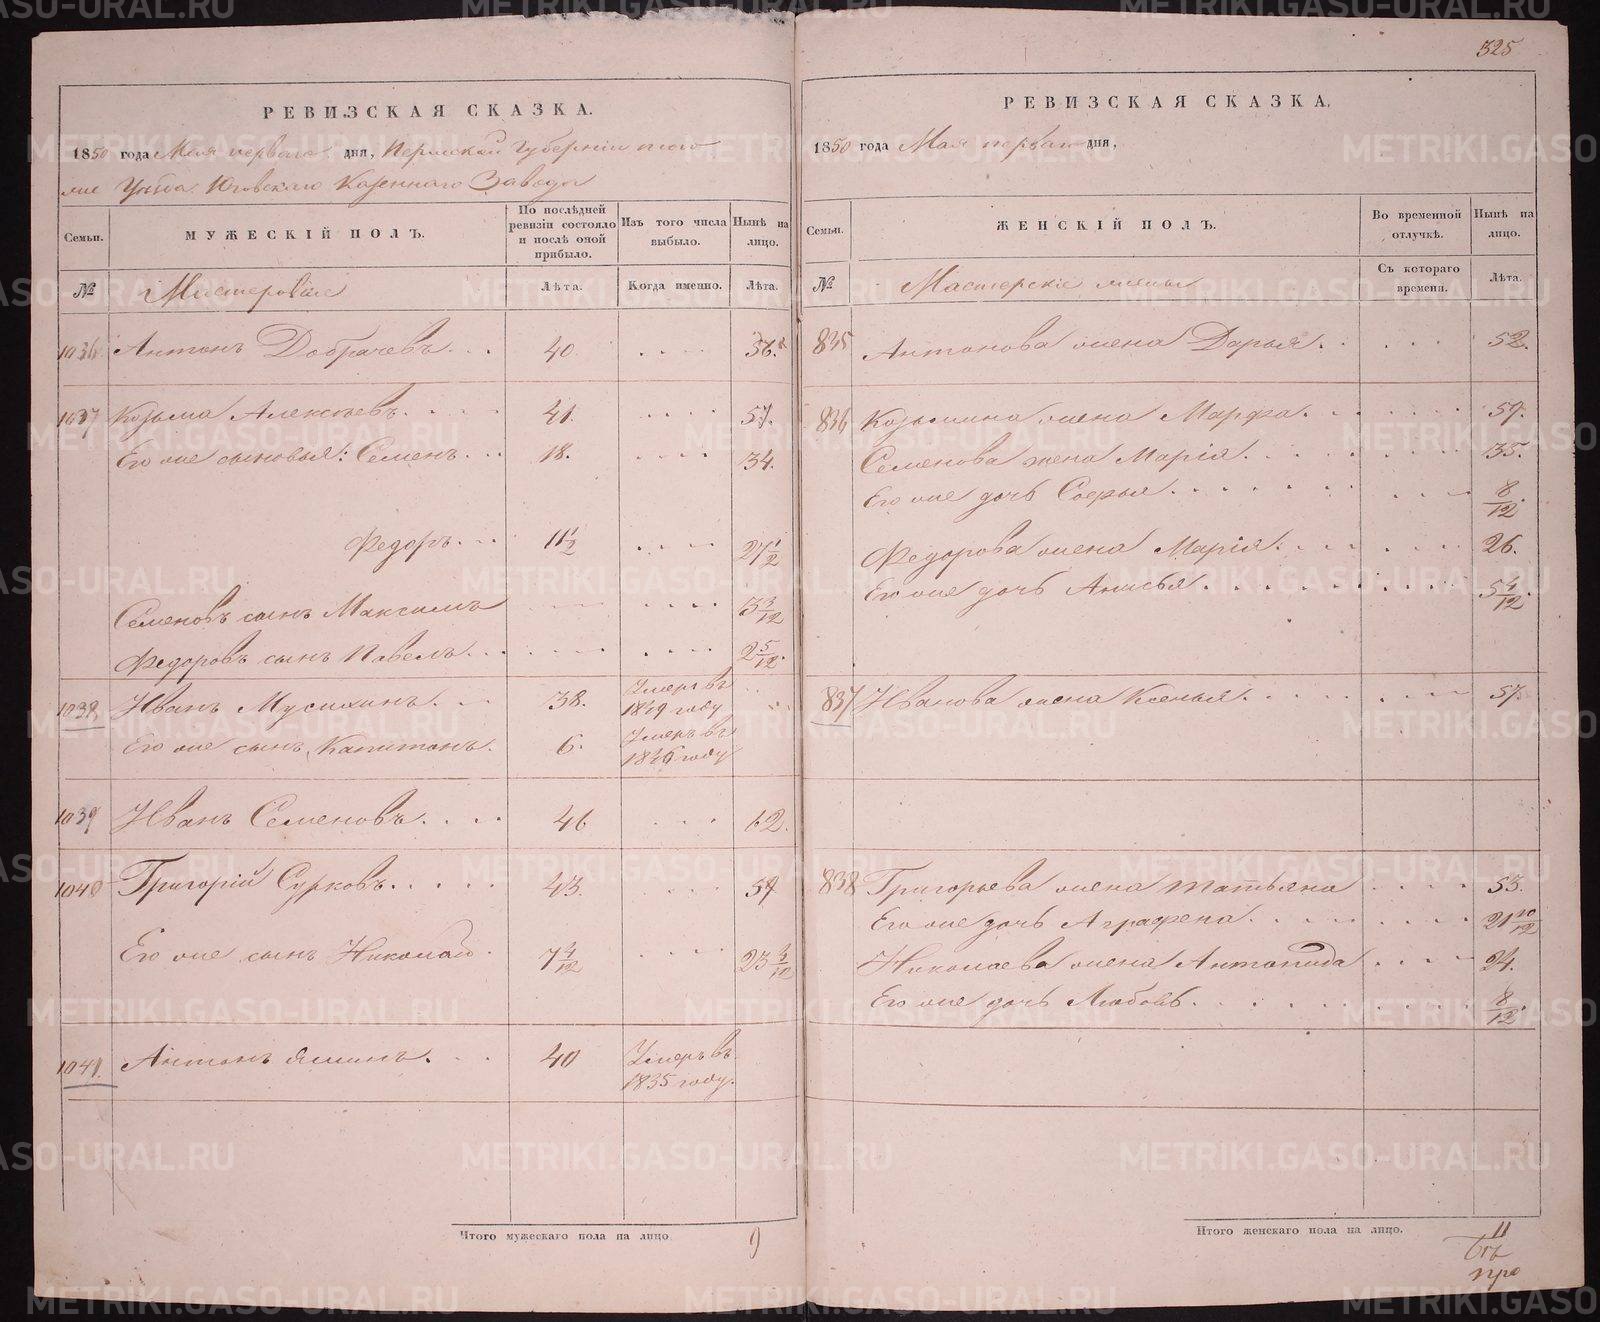 325
РЕВИЗСКАЯ СКАЗКА.
1850 года Мая перваго дня, Пермской Губернiи того
же Уѣзда Юговскаго Казеннаго Завода
Семьи.
МУЖЕСКIЙ ПОЛЪ.
По послѣдней ревизiи состояло и послѣ оной прибыло.
Изъ того числа выбыло.
Нынѣ на лицо.
№
Мастеровые
Лѣта.
Когда именно.
Лѣта.
1036 Антонъ Добрачевъ 40 56.
1037 Козьма Алексѣевъ 41. 57.
Его же сыновья: Семенъ 18. 34.
Федоръ 11 1/2 27 1/2
Семеновъ сынъ Максимъ 3 3/12
Федоровъ сынъ Павелъ 2 5/12
1038 Иванъ Мусихинъ 38. Умеръ въ 1849 году
Его же сынъ Капитонъ. 6. Умеръ въ 1846 году
1039 Иванъ Семеновъ 46 62.
1040 Григорiй Сурковъ 43. 59
Его же сынъ Николай 7 4/12 23 4/12
1041 Антонъ Яшинъ. 40 Умеръ въ 1835 году.
Итого мужескаго пола на лицо 9
РЕВИЗСКАЯ СКАЗКА.
1850 года Мая перваго дня,
Семьи.
ЖЕНСКIЙ ПОЛЪ.
Во временной отлучкѣ.
Нынѣ на лицо.
№
Мастерскiе жены
Съ котораго времени.
Лѣта.
835 Антонова жена Дарья. 52.
836 Козьмина жена Марфа. 57.
Семенова жена Марiя. 35.
Его же дочь Софья 8/12
Федорова жена Марiя. 26.
Его же дочь Анисья 5 4/12
837 Иванова жена Ксенья. 57.
838 Григорьева жена Татьяна 53.
Его же дочь Аграфена 21 10/12
Николаева жена Антонида 24.
Его же дочь Любовь 8/12
Итого женскаго пола на лицо. 11
METRIKI.GASO-URAL.RU